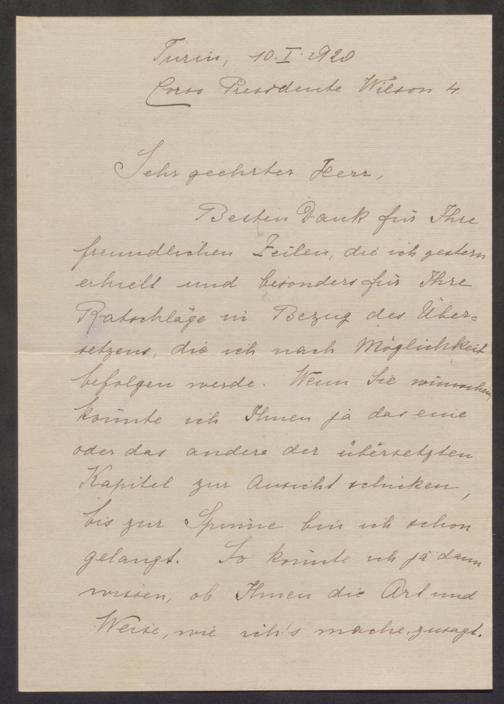 Turin, 10.I.1920
Corso Presidente Wilson 4
Sehr geehrter Herr,
Besten Dank für Ihre
freundlichen Zeilen, die ich gestern
erhielt und besonders für Ihre
Ratschläge in Bezug des Über=
setzens, die ich nach Möglichkeit
befolgen werde. Wenn Sie wünschen
könnte ich Ihnen ja das eine
oder das andere der übersetzten
Kapitel zur Ansicht schicken,
bis zur Spinne bin ich schon
gelangt. So könnte ich ja dann
wissen, ob Ihnen die Art und
Weise, wie ich's mache, zusagt.